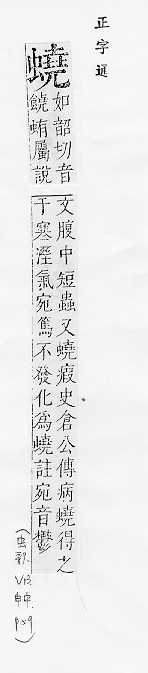 正字通
蟯
如韶切音
饒蛕屬說
文腹中短蟲又蟯瘕史倉公傳病蟯得之
于寒溼氣宛篤不發化爲蟯註宛音鬱